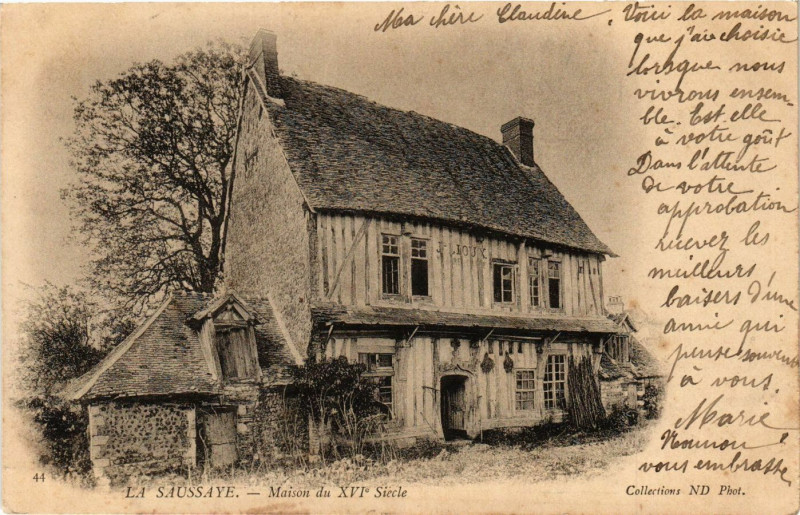 Ma chère Claudine, Voici la maison
que j'ai choisie
lorsque nous
vivrons ensem-
ble. Est elle
à votre goût
Dans l'attente
de votre
approbation
recevez les
meilleurs
baisers d'une
amie qui
pense souvent
à vous.
Marie
vous embrasse
J. JOUX
44
LA SAUSSAYE. — Maison du XVIe Siècle
Collections ND Phot.